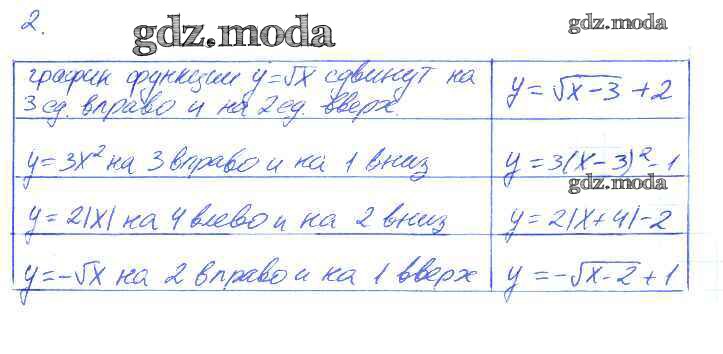 2.
gdz.moda
gdz.moda
график функции y=√x сдвинут на
3 ед. вправо и на 2 ед. вверх.
y = √x-3 + 2
y=3x² на 3 вправо и на 1 вниз
y = 3(x-3)²-1
gdz.moda
y=2|x| на 4 влево и на 2 вниз
y=2|x+4|-2
y=-√x на 2 вправо и на 1 вверх
y = -√x-2+1